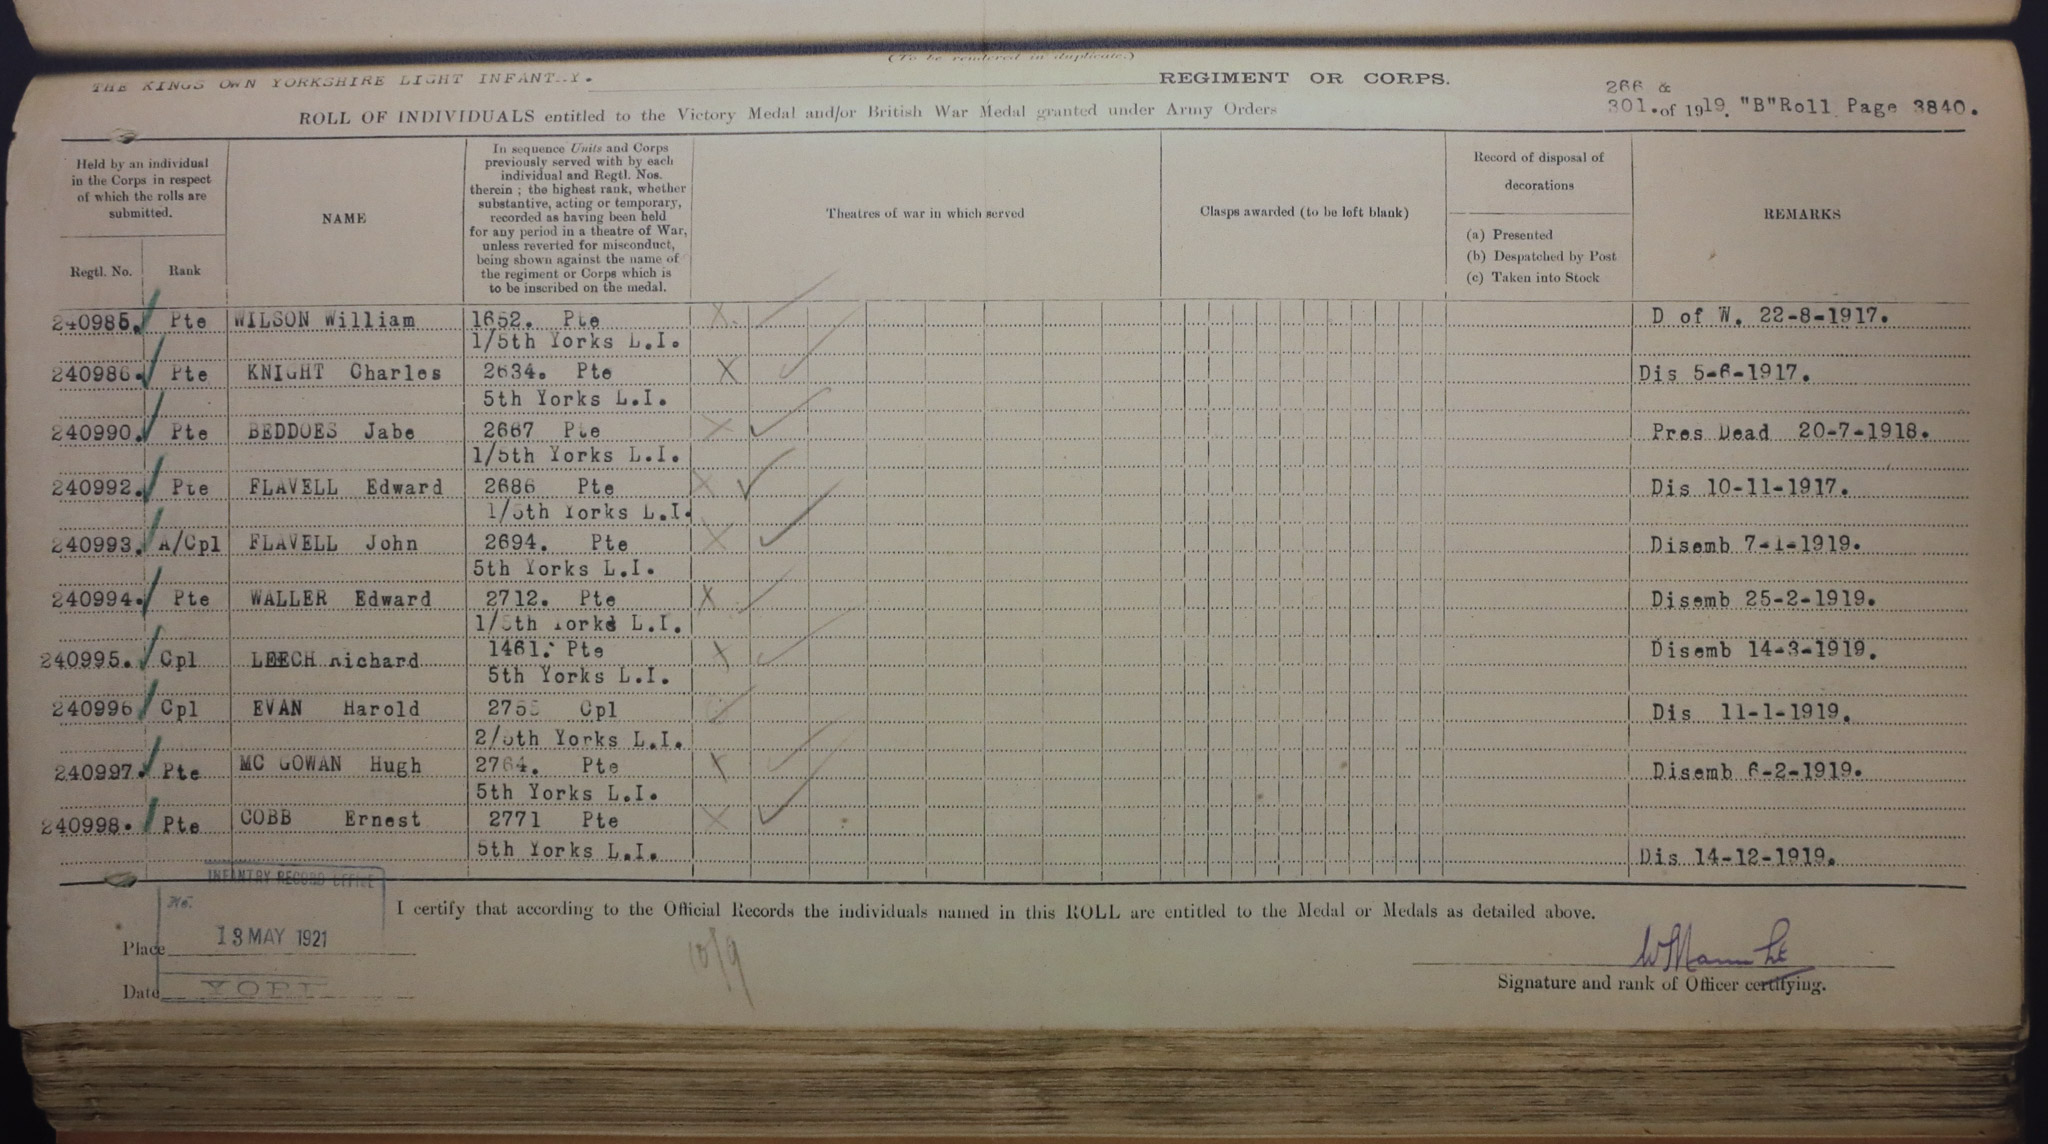 (To be rendered in duplicate.)
THE KINGS OWN YORKSHIRE LIGHT INFANTRY. REGIMENT OR CORPS.
ROLL OF INDIVIDUALS entitled to the Victory Medal and/or British War Medal granted under Army Orders
266 &
301. of 1919. "B"Roll Page 3840.
Held by an individual in the Corps in respect of which the rolls are submitted.
Regtl. No. Rank
NAME
In sequence Units and Corps
previously served with by each
individual and Regtl. Nos.
therein ; the highest rank, whether
substantive, acting or temporary,
recorded as having been held
for any period in a theatre of War,
unless reverted for misconduct,
being shown against the name of
the regiment or Corps which is
to be inscribed on the medal.
Theatres of war in which served
Clasps awarded (to be left blank)
Record of disposal of
decorations
(a) Presented
(b) Despatched by Post
(c) Taken into Stock
REMARKS
240985. Pte WILSON William 1652. Pte D of W. 22-8-1917.
1/5th Yorks L.I.
240986. Pte KNIGHT Charles 2634. Pte Dis 5-6-1917.
5th Yorks L.I.
240990. Pte BEDDOES Jabe 2667 Pte Pres Dead 20-7-1918.
1/5th Yorks L.I.
240992. Pte FLAVELL Edward 2686 Pte Dis 10-11-1917.
1/5th Yorks L.I.
240993. A/Cpl FLAVELL John 2694. Pte Disemb 7-1-1919.
5th Yorks L.I.
240994. Pte WALLER Edward 2712. Pte Disemb 25-2-1919.
1/5th Yorks L.I.
240995. Cpl LEECH Richard 1461. Pte Disemb 14-3-1919.
5th Yorks L.I.
240996 Cpl EVAN Harold Cpl Dis 11-1-1919.
2/5th Yorks L.I.
240997. Pte MC GOWAN Hugh 2764. Pte Disemb 6-2-1919.
5th Yorks L.I.
240998. Pte COBB Ernest 2771 Pte
5th Yorks L.I. Dis 14-12-1919.
INFANTRY RECORD OFFICE
No.
I certify that according to the Official Records the individuals named in this ROLL are entitled to the Medal or Medals as detailed above.
Place 13 MAY 1921
Date YORK
10/9
W Mann Lt
Signature and rank of Officer certifying.